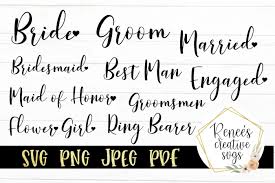 Bride Groom Married
Bridesmaid Best Man Engaged
Maid of Honor Groomsmen
Flower Girl Ring Bearer
SVG PNG JPEG PDF
Reneé's
creative
svgs